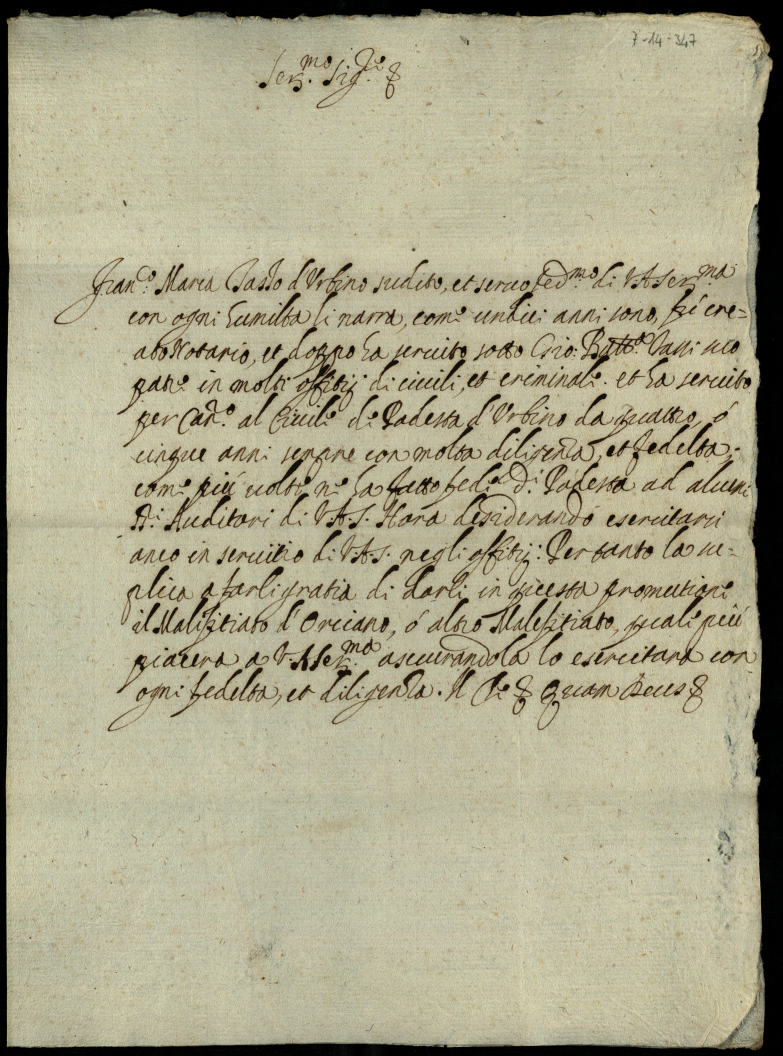 7-14-347
Ser.mo Sig.re
Fran.co Maria Tasso d'Urbino sudito, et servo fed.mo di V A Ser.ma
con ogni humilta li narra, come undici anni sono, fú cre=
ato Notario, et doppo ha servito sotto Gio: Batt.a Tassi suo
patre in molti offitij di civili, et criminali. et ha servito
per Canc.ro al Civile di Podesta d'Urbino da quattro, ó
cinque anni sempre con molta diligenza, et fedelta,
come piú volte ne ha fatto fede di Podesta ad alcuni
Auditori di V.A.S. Hora desiderando esercitarsi
anco in servitio di V.A.S. negli offitij: Pertanto la su=
plica a farli gratia di darli in questa promutione
il Malefitiato d'Orciano, ó altro Malefitiato, quale piú
piacera a V.A Ser.ma assicurandola lo esercitara con
ogni fedelta, et diligenza. Il Che Quam Deus